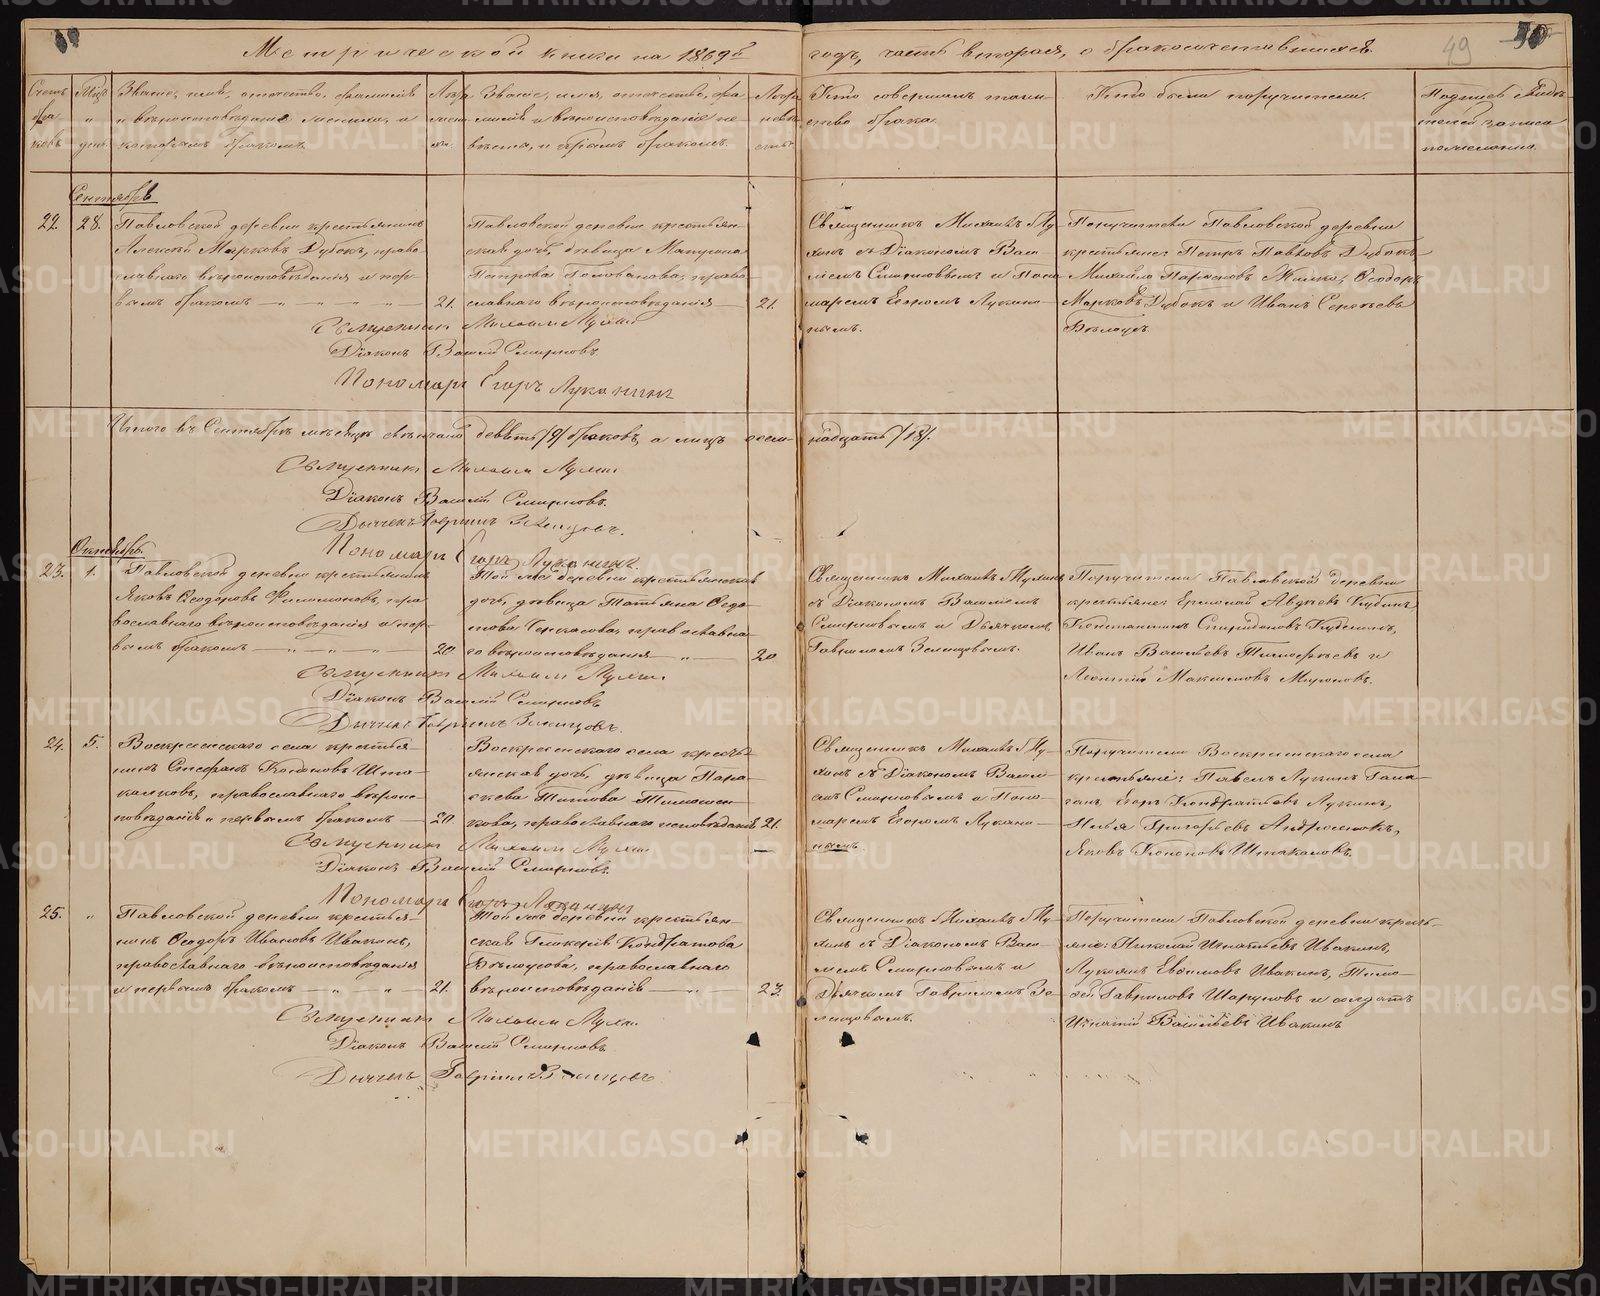 Метрической книги на 1869й годъ, часть вторая, о бракосочетавшихся.
49
Счетъ браковъ
Мѣсяцъ и день
Званіе, имя, отчество, фамилія
и вѣроисповѣданіе жениха, и
которымъ бракомъ.
Званіе, имя, отчество, фа-
милія и вѣроисповѣданіе не-
вѣсты, и которымъ бракомъ.
Кто совершалъ таин-
ство брака.
Кто были поручители.
Сентябрь
22.
28.
Павловской деревни крестьянинъ
Алексѣй Марковъ Дубокъ, право-
славнаго вѣроисповѣданія и пер-
вымъ бракомъ
21.
Павловской деревни крестьян-
ская дочь, дѣвица Матрона
Петрова Голованова, право-
славнаго вѣроисповѣданія
21.
Священникъ Михаилъ Му-
хинъ съ Діакономъ Васи-
ліемъ Смирновымъ и Поно-
маремъ Егоромъ Лукани-
нымъ.
Поручители Павловской деревни
крестьяне: Петръ Павловъ Дубокъ
Марковъ Дубокъ и Иванъ Сергѣевъ
Бѣлоусъ
Священникъ Михаилъ Мухин
Діаконъ Василій Смирновъ
Пономарь Егоръ Луканинъ
Итого въ Сентябрѣ мѣсяцѣ свѣнчано девять /9/ браковъ, а лицъ осем-
надцать /18/.
Священникъ Михаилъ Мухин
Діаконъ Василій Смирновъ.
Дьячекъ Гавріилъ Зеленцовъ.
Пономарь Егоръ Луканинъ.
Октябрь.
23.
1.
Павловской деревни крестьянинъ
Яковъ Ѳеодоровъ Филимоновъ, пра-
вославнаго вѣроисповѣданія и пер-
вымъ бракомъ
20
Той же деревни крестьянская
дочь, дѣвица Татьяна Ѳедо-
това Черкасова, православна-
го вѣроисповѣданія
20
Священникъ Михаилъ Мухинъ
съ Діакономъ Василіемъ
Смирновымъ и Дьячкомъ
Гавріиломъ Зеленцовымъ.
Поручители Павловской деревни
крестьяне: Ермолай Авдѣевъ
Константинъ Спиридоновъ
Иванъ Васильевъ Тимофѣевъ и
Леонтій Максимовъ Мироновъ.
Священникъ Михаилъ Мухин.
Діаконъ Василій Смирновъ
Дьячекъ Гавріилъ Зеленцовъ.
24.
5.
Воскресенскаго села крестья-
нинъ Стефанъ Кононовъ Шта-
каловъ, православнаго вѣроис-
повѣданія и первымъ бракомъ
20
Воскресенскаго села кресть-
янская дочь, дѣвица Пара-
скева Титова Тимошен-
кова, православнаго исповѣданія
21.
Священникъ Михаилъ Му-
хинъ съ Діакономъ Васили-
емъ Смирновымъ и Поно-
маремъ Егоромъ Лукани-
нымъ.
Поручители Воскресенскаго села
крестьяне: Павелъ Лукинъ Гала-
ганъ, Егоръ Кондратьевъ Лукинъ,
Илья Григорьевъ Андросенокъ,
Яковъ Кононовъ Штакаловъ.
Священникъ Михаилъ Мухин
Діаконъ Василій Смирновъ.
Пономарь Егоръ Луканинъ
25.
"
Павловской деревни крестья-
нинъ Ѳеодоръ Ивановъ Ивакинъ,
православнаго вѣроисповѣданія
и первымъ бракомъ
21.
Той же деревни крестьян-
ская Гликерія Кондратова
Бѣлоусова, православнаго
вѣроисповѣданія
23.
Священникъ Михаилъ Му-
хинъ съ Діакономъ Васи-
ліемъ Смирновымъ и
Дьячкомъ Гавріиломъ Зе-
ленцовымъ.
Поручители Павловской деревни кресть-
яне: Николай Игнатьевъ Ивакинъ,
Лукьянъ Евѳимовъ Ивакинъ, Тимо-
ѳей Гавриловъ Шаруновъ и солдатъ
Игнатій Васильевъ Ивакинъ
Священникъ Михаилъ Мухин.
Діаконъ Василій Смирновъ.
Дьячекъ Гавріилъ Зеленцовъ
METRIKI.GASO-URAL.RU